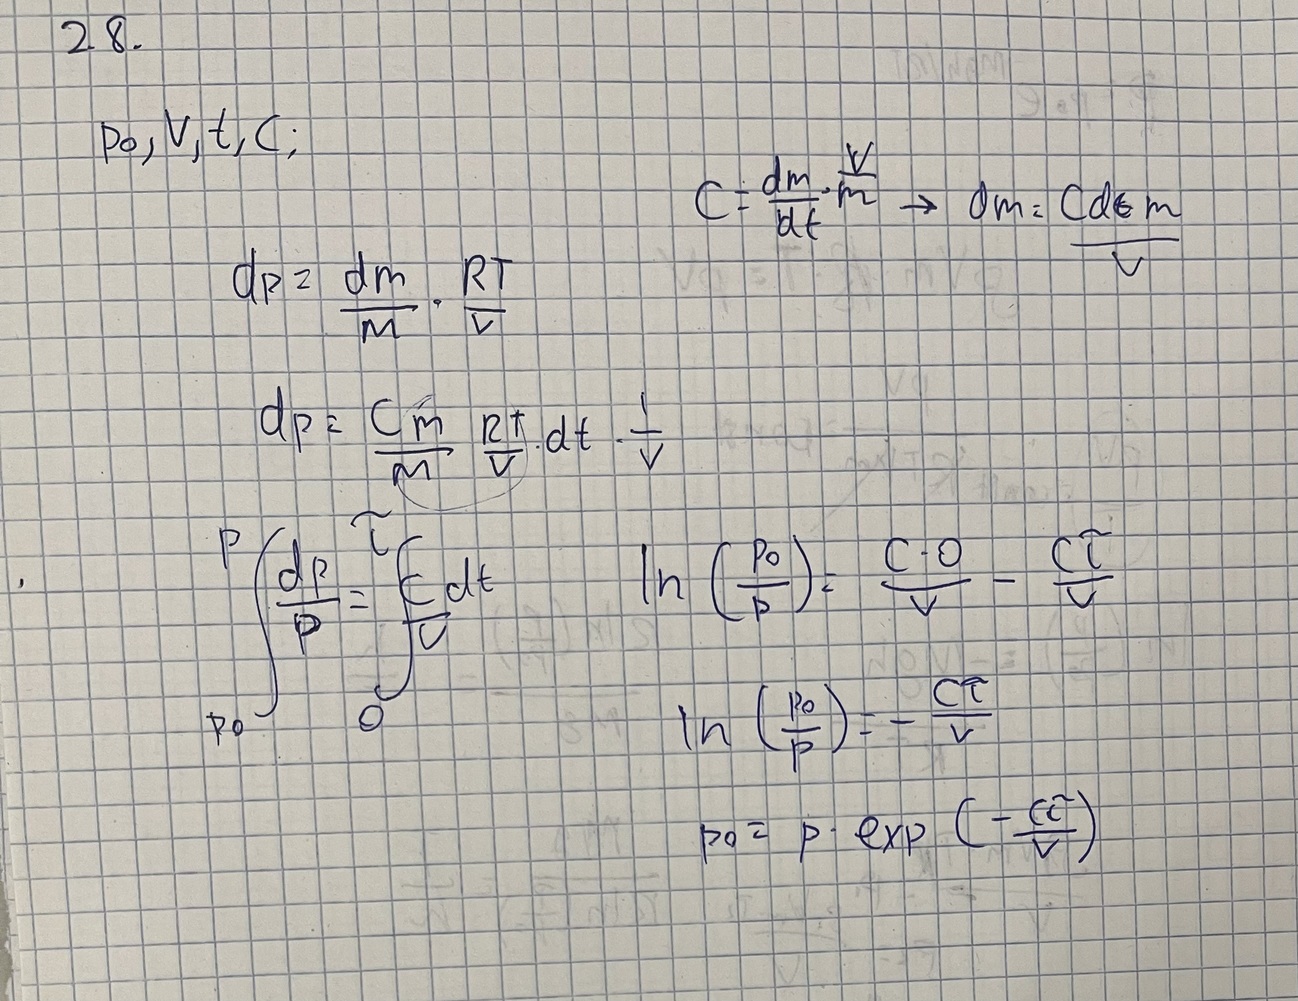 28.
p₀, V, t, C;
C = dm/dt · V/m → dm = Cdt m / V
dp = dm/M · RT/V
dp = Cm/M RT/V · dt · 1/V
∫_{p₀}^{p} dp/p = ∫_{0}^{τ} C/V dt
ln (p₀/p) = C·0/V - Cτ/V
ln (p₀/p) = - Cτ/V
p₀ = p · exp (- Cτ/V)